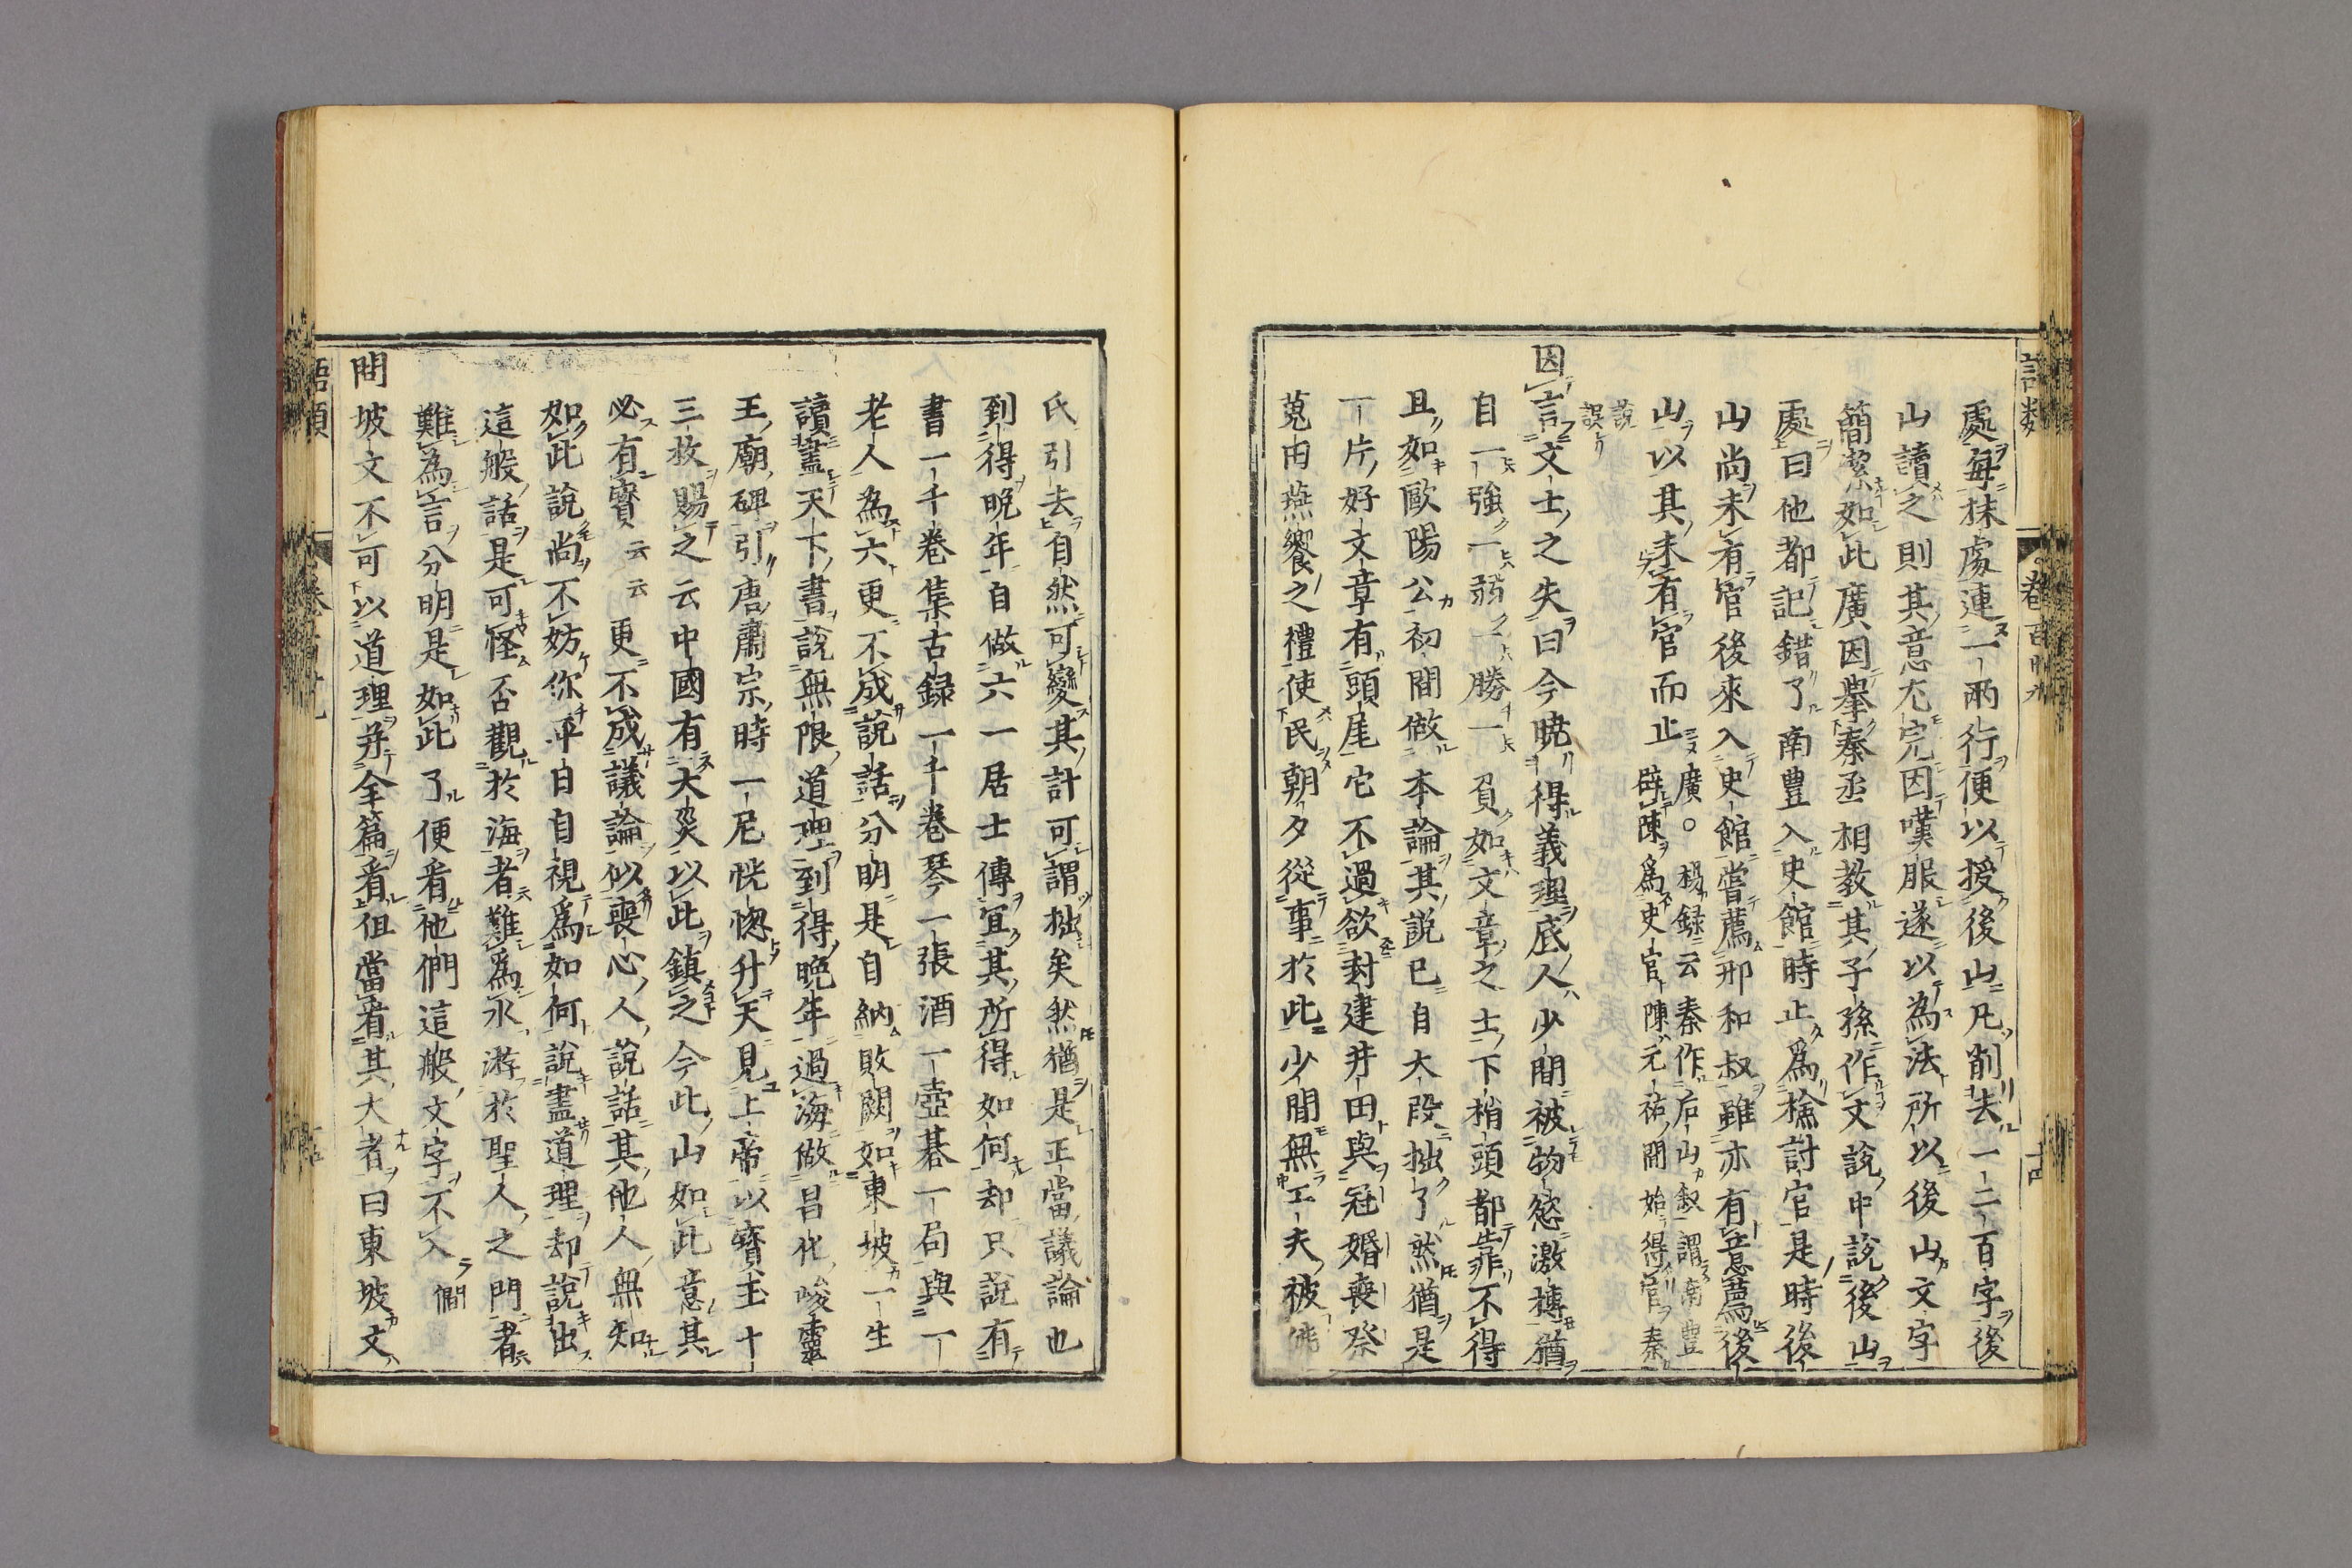 處每抹處連一兩行便以授後山凡削去一二百字後
山讀之則其意尤完因嘆服遂以為法所以後山文字
簡潔如此廣因舉秦丞相教其子孫作文說中說後山
處曰他都記錯了南豊入史館時止為檢討官是時後
山尚未有官後來入史館嘗薦邢和叔雖亦有意薦後
山以其未有官而止
廣〇楊録云秦作后山叙謂南豊
辟陳為史官陳元祐間始得官秦
說
誤
因言文士之失曰今曉得義理底人少間被物慾激搏猶
自一強一弱一勝一負如文章之士下梢頭都靠不得
且如歐陽公初間做本論其說已自大段拙了然猶是
一片好文章有頭尾它不過欲封建井田與冠婚喪祭
蒐田燕饗之禮使民朝夕從事於此少間無工夫被佛
氏引去自然可變其計可謂拙矣然猶是正當議論也
到得晚年自做六一居士傳宜其所得如何却只說有
書一千卷集古録一千卷琴一張酒一壺碁一局與一
老人為六更不成說話分明是自納敗闕如東坡一生
讀盡天下書說無限道理到得晚年過海做昌化峻靈
王廟碑引唐肅宗時一尼恍惚升天見上帝以寳玉十
三枚賜之云中國有大災以此鎮之今此山如此意其
必有寳云云更不成議論似喪心人說話其他人無知
如此說尚不妨你平日自視為如何說盡道理却說出
這般話是可怪否觀於海者難為水游於聖人之門者
難為言分明是如此了便看他們這般文字不入僩
問坡文不可以道理并全篇看但當看其大者曰東坡文